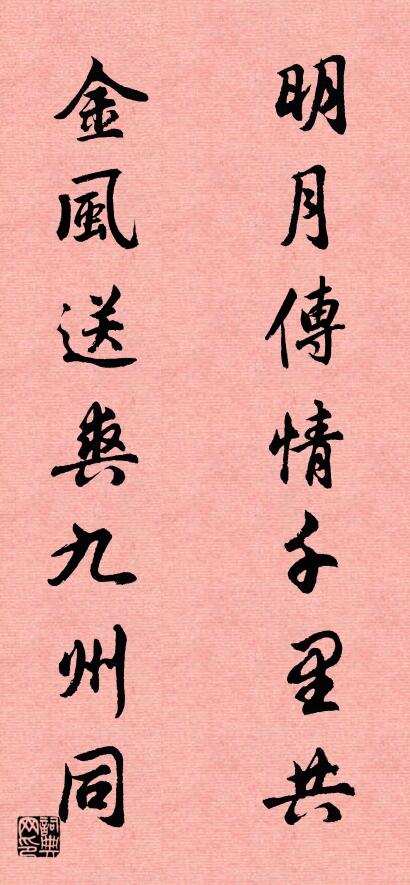 明月傳情千里共
金風送爽九州同
詞典网印